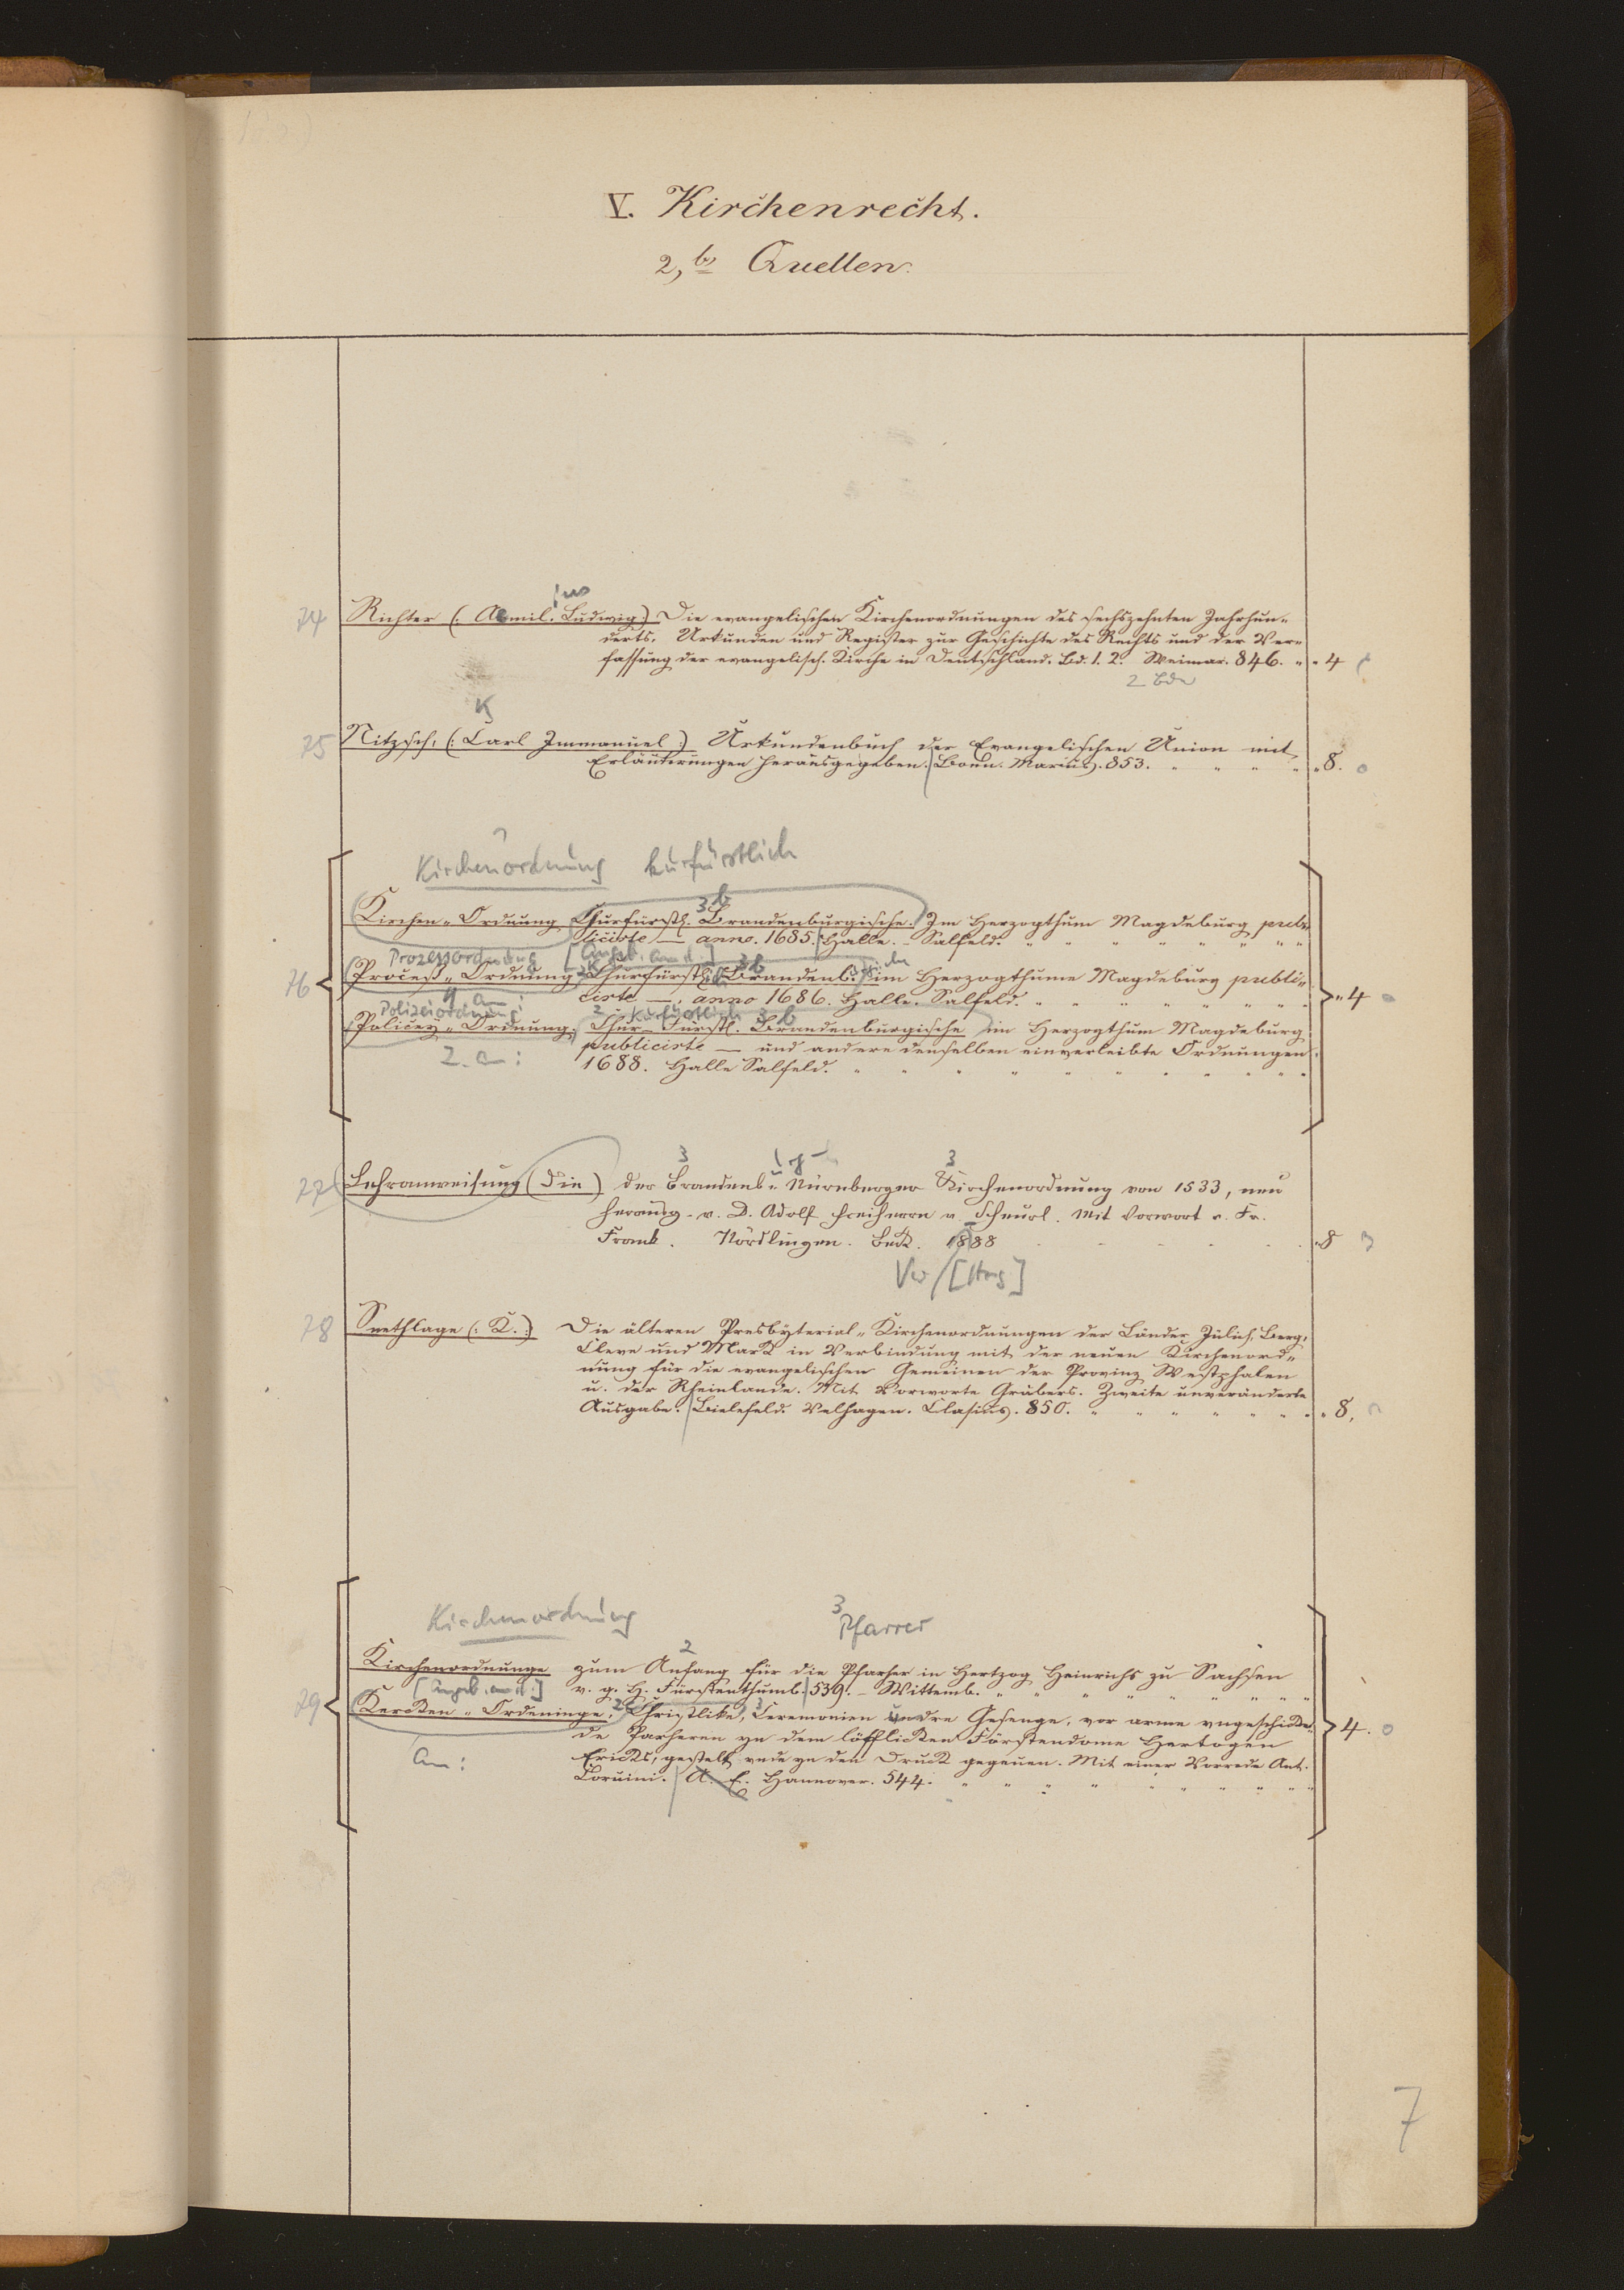 V. Kirchenrecht.
2, b, Quellen.
ius
74 Richter (: Aemil. Ludwig) Die evangelischen Kirchenordnungen des sechszehnten Jahrhun-
derts. Urkunden und Register zur Geschichte des Rechts und der Ver-
fassung der evangelisch. Kirche in Deutschland. Bd. 1. 2. Weimar. 846. " " 4
2 Bde
K
75 Nitzsch, (: Carl Immanuel :) Urkundenbuch der Evangelischen Union mit
Erläuterungen herausgegeben. Bonn. Marcus. 853. " " " " " 8.
Kirchenordnung kurfürstlich
3 b
Kirchen-Ordnung Churfürstl. Brandenburgische. Im Herzogthum Magdeburg publi-
cirte — anno. 1685. Halle. Salfeld.
Prozessordnung [Angeb. an d.]
76 Proceß-Ordnung Churfürstl. Brandenb. im Herzogthume Magdeburg publi-
cirte —, anno 1686. Halle. Salfeld. " 4
Polizeiordnung kurfürstlich 3 b
Policey-Ordnung, Chur-Fürstl. Brandenburgische im Herzogthum Magdeburg
publicirte — und andere denselben einverleibte Ordnungen.
2. an: 1688. Halle Salfeld.
3 3
77 Lehranweisung (Die) der Brandenb. Nürnberger Kirchenordnung von 1533, neu
herausg. v. D. Adolf Freiherrn v. Scheurl. Mit Vorwort v. Fr.
Frank. Nördlingen. Beck. 1888 8
Vw/[Hrsg]
78 Snethlage (: K. :) Die älteren Presbyterial-Kirchenordnungen der Länder Jülich, Berg,
Cleve und Mark in Verbindung mit der neuen Kirchenord-
nung für die evangelischen Gemeinen der Provinz Westphalen
u. der Rheinlande. Mit Vorworte Gräbers. Zweite unveränderte
Ausgabe. Bielefeld. Velhagen. Clasius. 850. " 8,
Kirchenordnung 3 Pfarrer
2
Kirchenordnunge zum Anfang für die Pfarher in Hertzog Heinrichs zu Sachsen
[Angeb. an d.] v. g. H. Fürstenthumb. 539. - Wittemb.
79 Kercken-Ordeninge, Christlike, Ceremonien undre Gesenge, vor arme ungeschickte
de Parheren yn dem löfflicken Förstendome Hertogen 4.
an: Ericks, gestelt unde yn den Druck gegeuen. Mit einer Vorrede Ant.
Coruini. A. E. Hannover. 544.
7